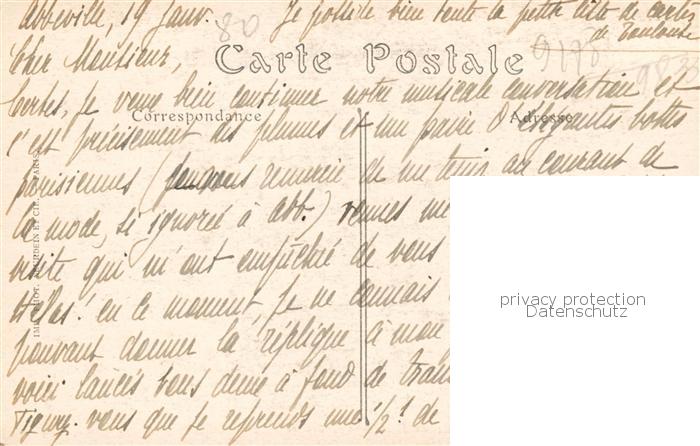 Abbeville, 19 Janv. Je possède bien toute la petite
de Toulouse
80
Cher Monsieur,
Carte Postale
9198
Certes, je veux bien continuer notre musicale conversation et
Correspondance
Adresse
c'est précisément des plumes et un paire d'élégantes bottes
parisiennes ( vous remercie de me tenir au courant de
la mode, si ignorée à Abb.) venues me
visite qui m'ont empêché de vous
hélas! en ce moment, je ne connais
pouvant donner la réplique à mon
voici lancés tous deux à fond de
vous que je reprends une 1/2 de
IMP. PHOT. NEURDEIN ET CIE. PARIS
privacy protection
Datenschutz